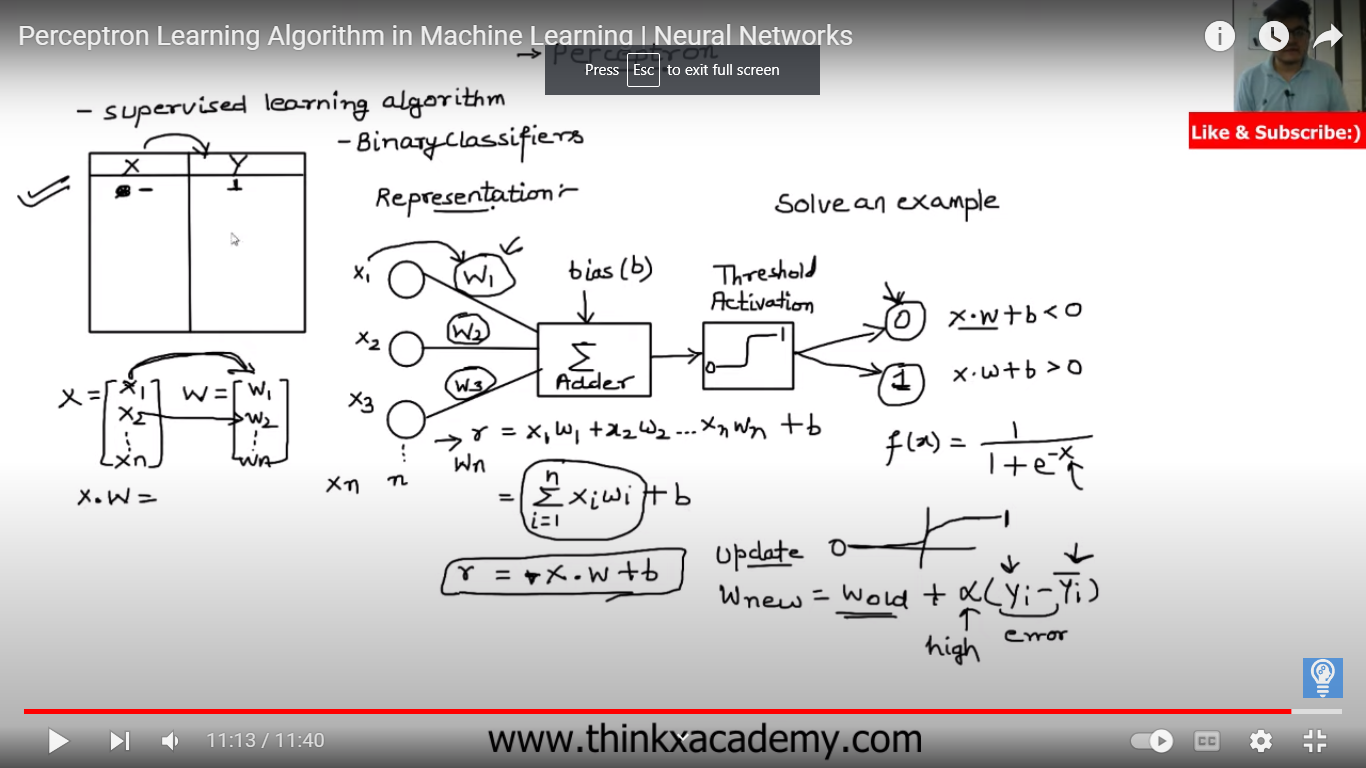 Perceptron Learning Algorithm in Machine Learning | Neural Networks
→ Perceptron
Press Esc to exit full screen
Like & Subscribe:)
- supervised learning algorithm
- Binary Classifiers
X Y
- 1
Representation:-
Solve an example
x₁ w₁
bias (b)
Threshold
Activation
x₂ w₂
x₃ w₃
Σ
Adder
0 1
0 x·w+b<0
1 x·w+b>0
X = [x₁ x₂ ⋮ xn] W = [w₁ w₂ ⋮ wn]
X·W =
xn n
wn
→ r = x₁w₁ + x₂w₂ ... xnwn + b
= Σ i=1 n xiwi + b
r = x·w+b
f(x) = 1 / 1+e^-x
0 1
Update
Wnew = Wold + α(Yi - Ȳi)
high error
11:13 / 11:40
www.thinkxacademy.com
CC